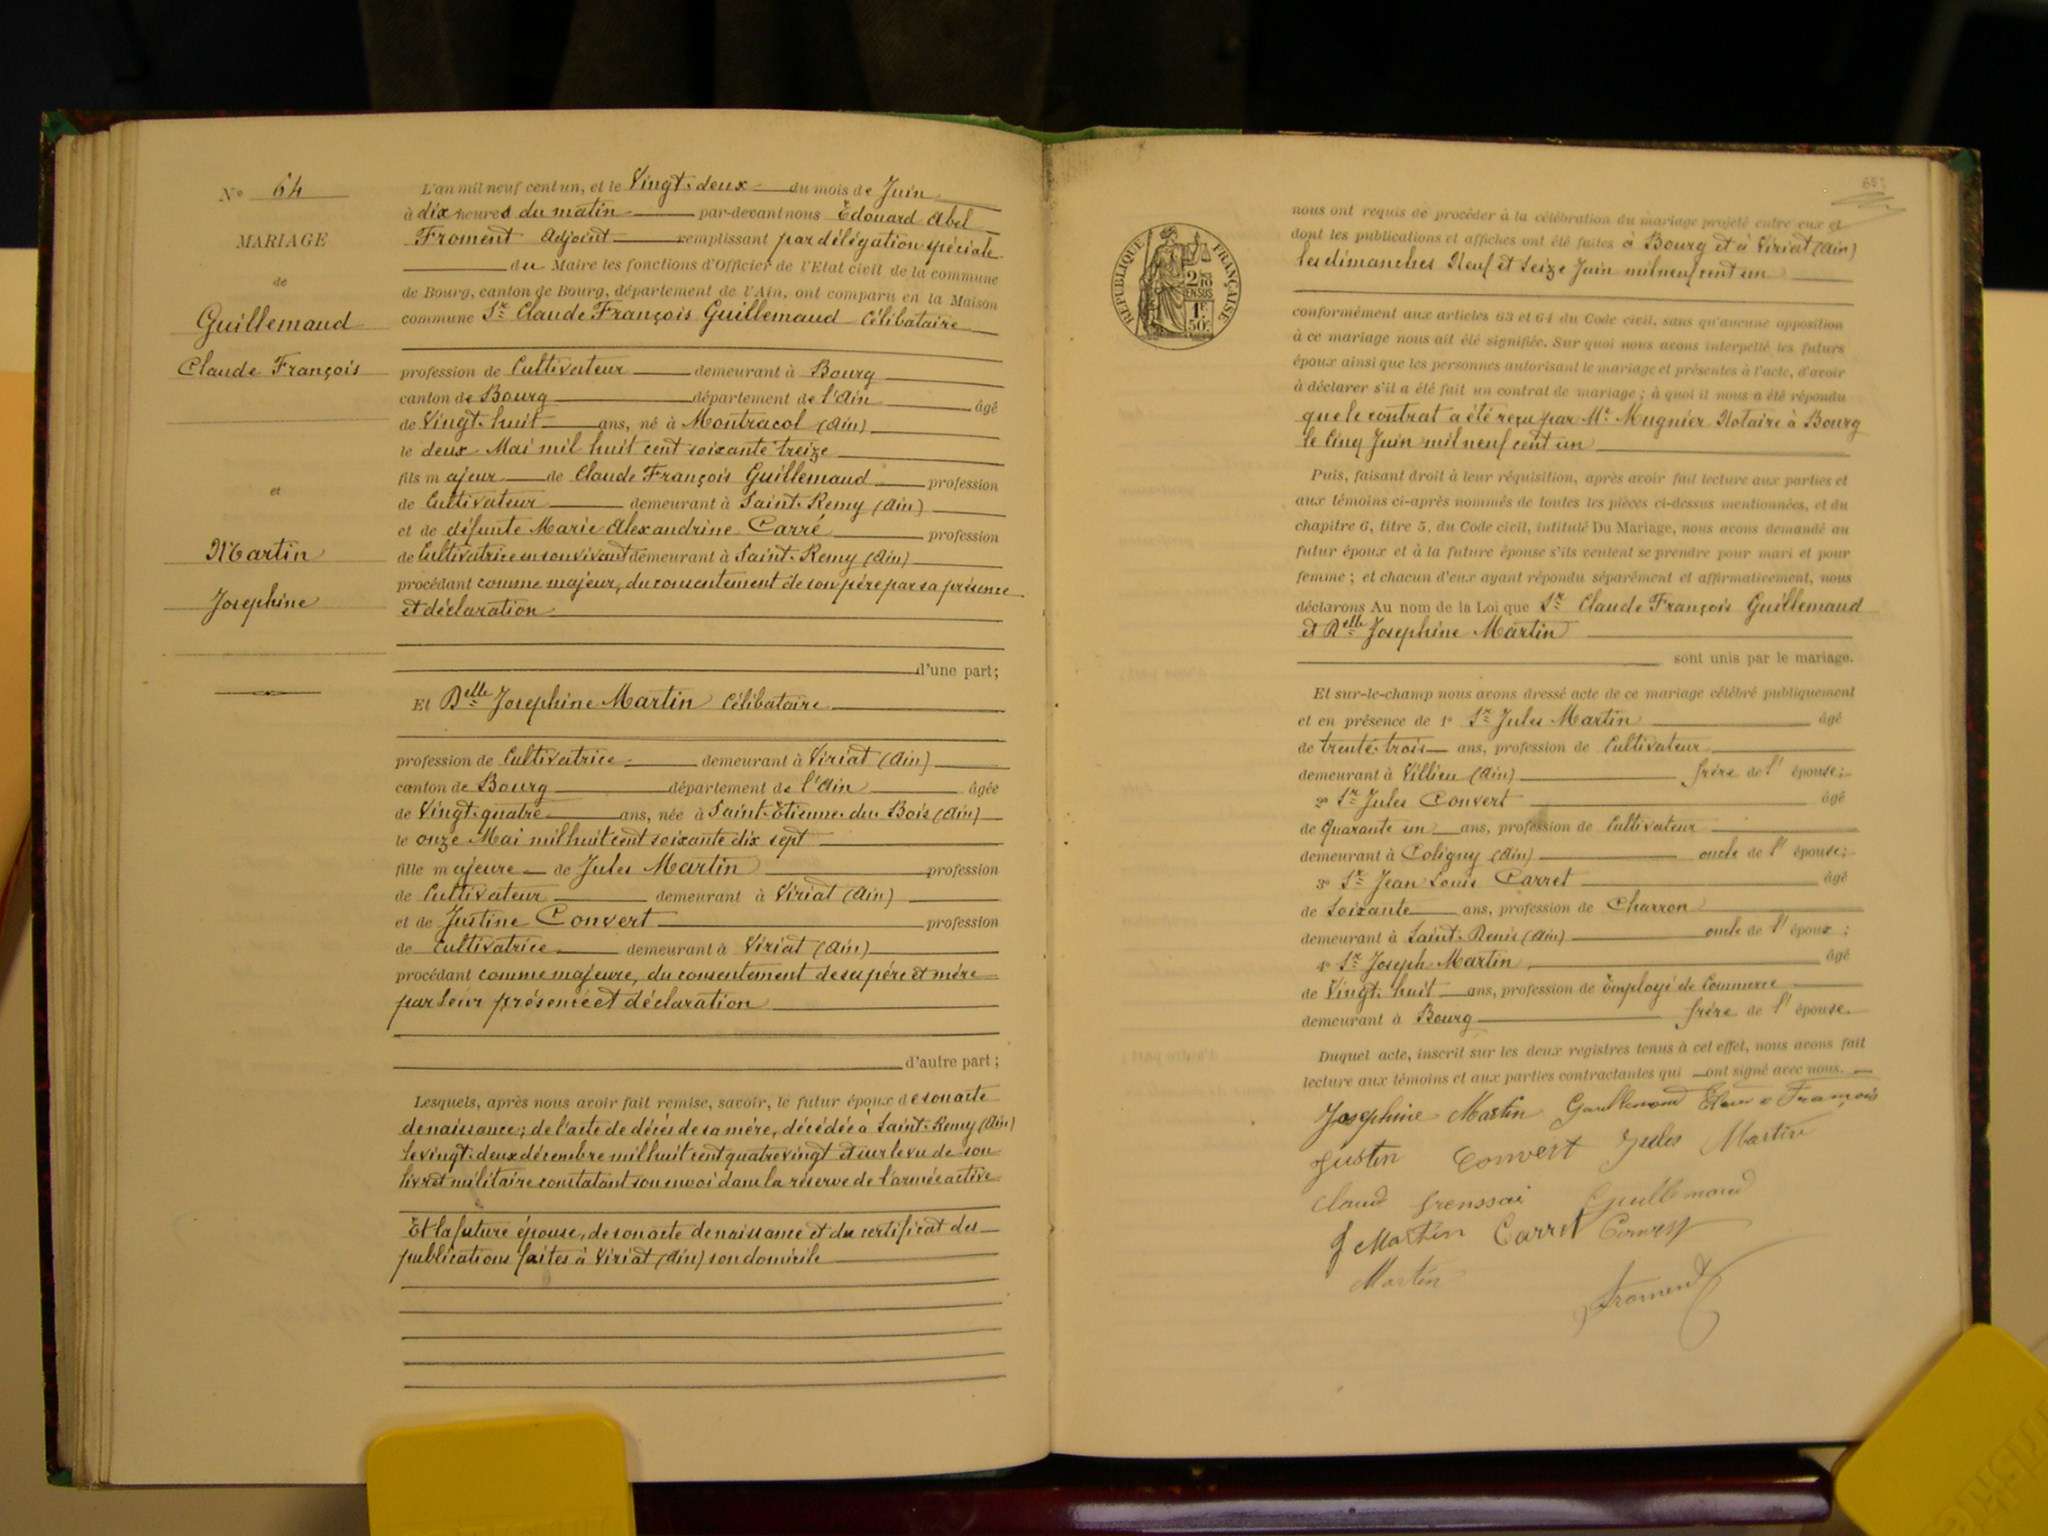 N° 64
MARIAGE
de
Guillemaud
Claude François
et
Martin
Josephine
L'an mil neuf cent un, et le Vingt-deux du mois de Juin
à dix heures du matin par-devant nous Edouard Abel
Froment Adjoint remplissant par délégation spéciale
du Maire les fonctions d'Officier de l'Etat civil de la commune
de Bourg, canton de Bourg, département de l'Ain, ont comparu en la Maison
commune Sr Claude François Guillemaud Célibataire
profession de Cultivateur demeurant à Bourg
canton de Bourg département de l'Ain âgé
de Vingt-huit ans, né à Montracol (Ain)
le deux Mai mil huit cent soixante treize
fils majeur de Claude François Guillemaud profession
de Cultivateur demeurant à Saint-Remy (Ain)
et de défunte Marie Alexandrine Carré profession
de Cultivatrice en son vivant demeurant à Saint-Remy (Ain)
procédant comme majeur, du consentement de son père par sa présence
et déclaration
d'une part;
Et Delle Josephine Martin Célibataire
profession de Cultivatrice demeurant à Viriat (Ain)
canton de Bourg département de l'Ain âgée
de Vingt-quatre ans, née à Saint-Etienne-du-Bois (Ain)
le onze Mai mil huit cent soixante dix sept
fille majeure de Jules Martin profession
de Cultivateur demeurant à Viriat (Ain)
et de Justine Convert profession
de Cultivatrice demeurant à Viriat (Ain)
procédant comme majeure, du consentement de ses père et mère
par leur présence et déclaration
d'autre part;
Lesquels, après nous avoir fait remise, savoir, le futur époux de son acte
de naissance; de l'acte de décès de sa mère, décédée à Saint-Remy (Ain)
le vingt-deux décembre mil huit cent quatre vingt et sur le vu de son
livret militaire constatant son envoi dans la réserve de l'armée active
Et la future épouse, de son acte de naissance et du certificat des
publications faites à Viriat (Ain) son domicile
RÉPUBLIQUE FRANÇAISE
2/10
EN SUS
1F
50C
nous ont requis de procéder à la célébration du mariage projeté entre eux et
dont les publications et affiches ont été faites à Bourg et à Viriat (Ain)
les dimanches Neuf et Seize Juin mil neuf cent un
conformément aux articles 63 et 64 du Code civil, sans qu'aucune opposition
à ce mariage nous ait été signifiée. Sur quoi nous avons interpellé les futurs
époux ainsi que les personnes autorisant le mariage et présentes à l'acte, d'avoir
à déclarer s'il a été fait un contrat de mariage; à quoi il nous a été répondu
que le contrat a été reçu par Me Mugnier Notaire à Bourg
le Cinq Juin mil neuf cent un
Puis, faisant droit à leur réquisition, après avoir fait lecture aux parties et
aux témoins ci-après nommés de toutes les pièces ci-dessus mentionnées, et du
chapitre 6, titre 5, du Code civil, intitulé Du Mariage, nous avons demandé au
futur époux et à la future épouse s'ils veulent se prendre pour mari et pour
femme; et chacun d'eux ayant répondu séparément et affirmativement, nous
déclarons Au nom de la Loi que Sr Claude François Guillemaud
et Delle Josephine Martin
sont unis par le mariage.
Et sur-le-champ nous avons dressé acte de ce mariage célébré publiquement
et en présence de 1° Sr Jules Martin âgé
de trente-trois ans, profession de Cultivateur
demeurant à Villieu (Ain) frère de l'épouse;
2° Sr Jules Convert âgé
de Quarante un ans, profession de Cultivateur
demeurant à Coligny (Ain) oncle de l'épouse;
3° Sr Jean Louis Carret âgé
de Soixante ans, profession de Charron
demeurant à Saint-Denis (Ain) oncle de l'époux;
4° Sr Joseph Martin âgé
de Vingt-huit ans, profession de Employé de Commerce
demeurant à Bourg frère de l'épouse.
Duquel acte, inscrit sur les deux registres tenus à cet effet, nous avons fait
lecture aux témoins et aux parties contractantes qui ont signé avec nous.
Josephine Martin Guillemaud François
Justin Convert Jules Martin
Claud Guillemaud
J Martin Carret Convert
Martin
Froment